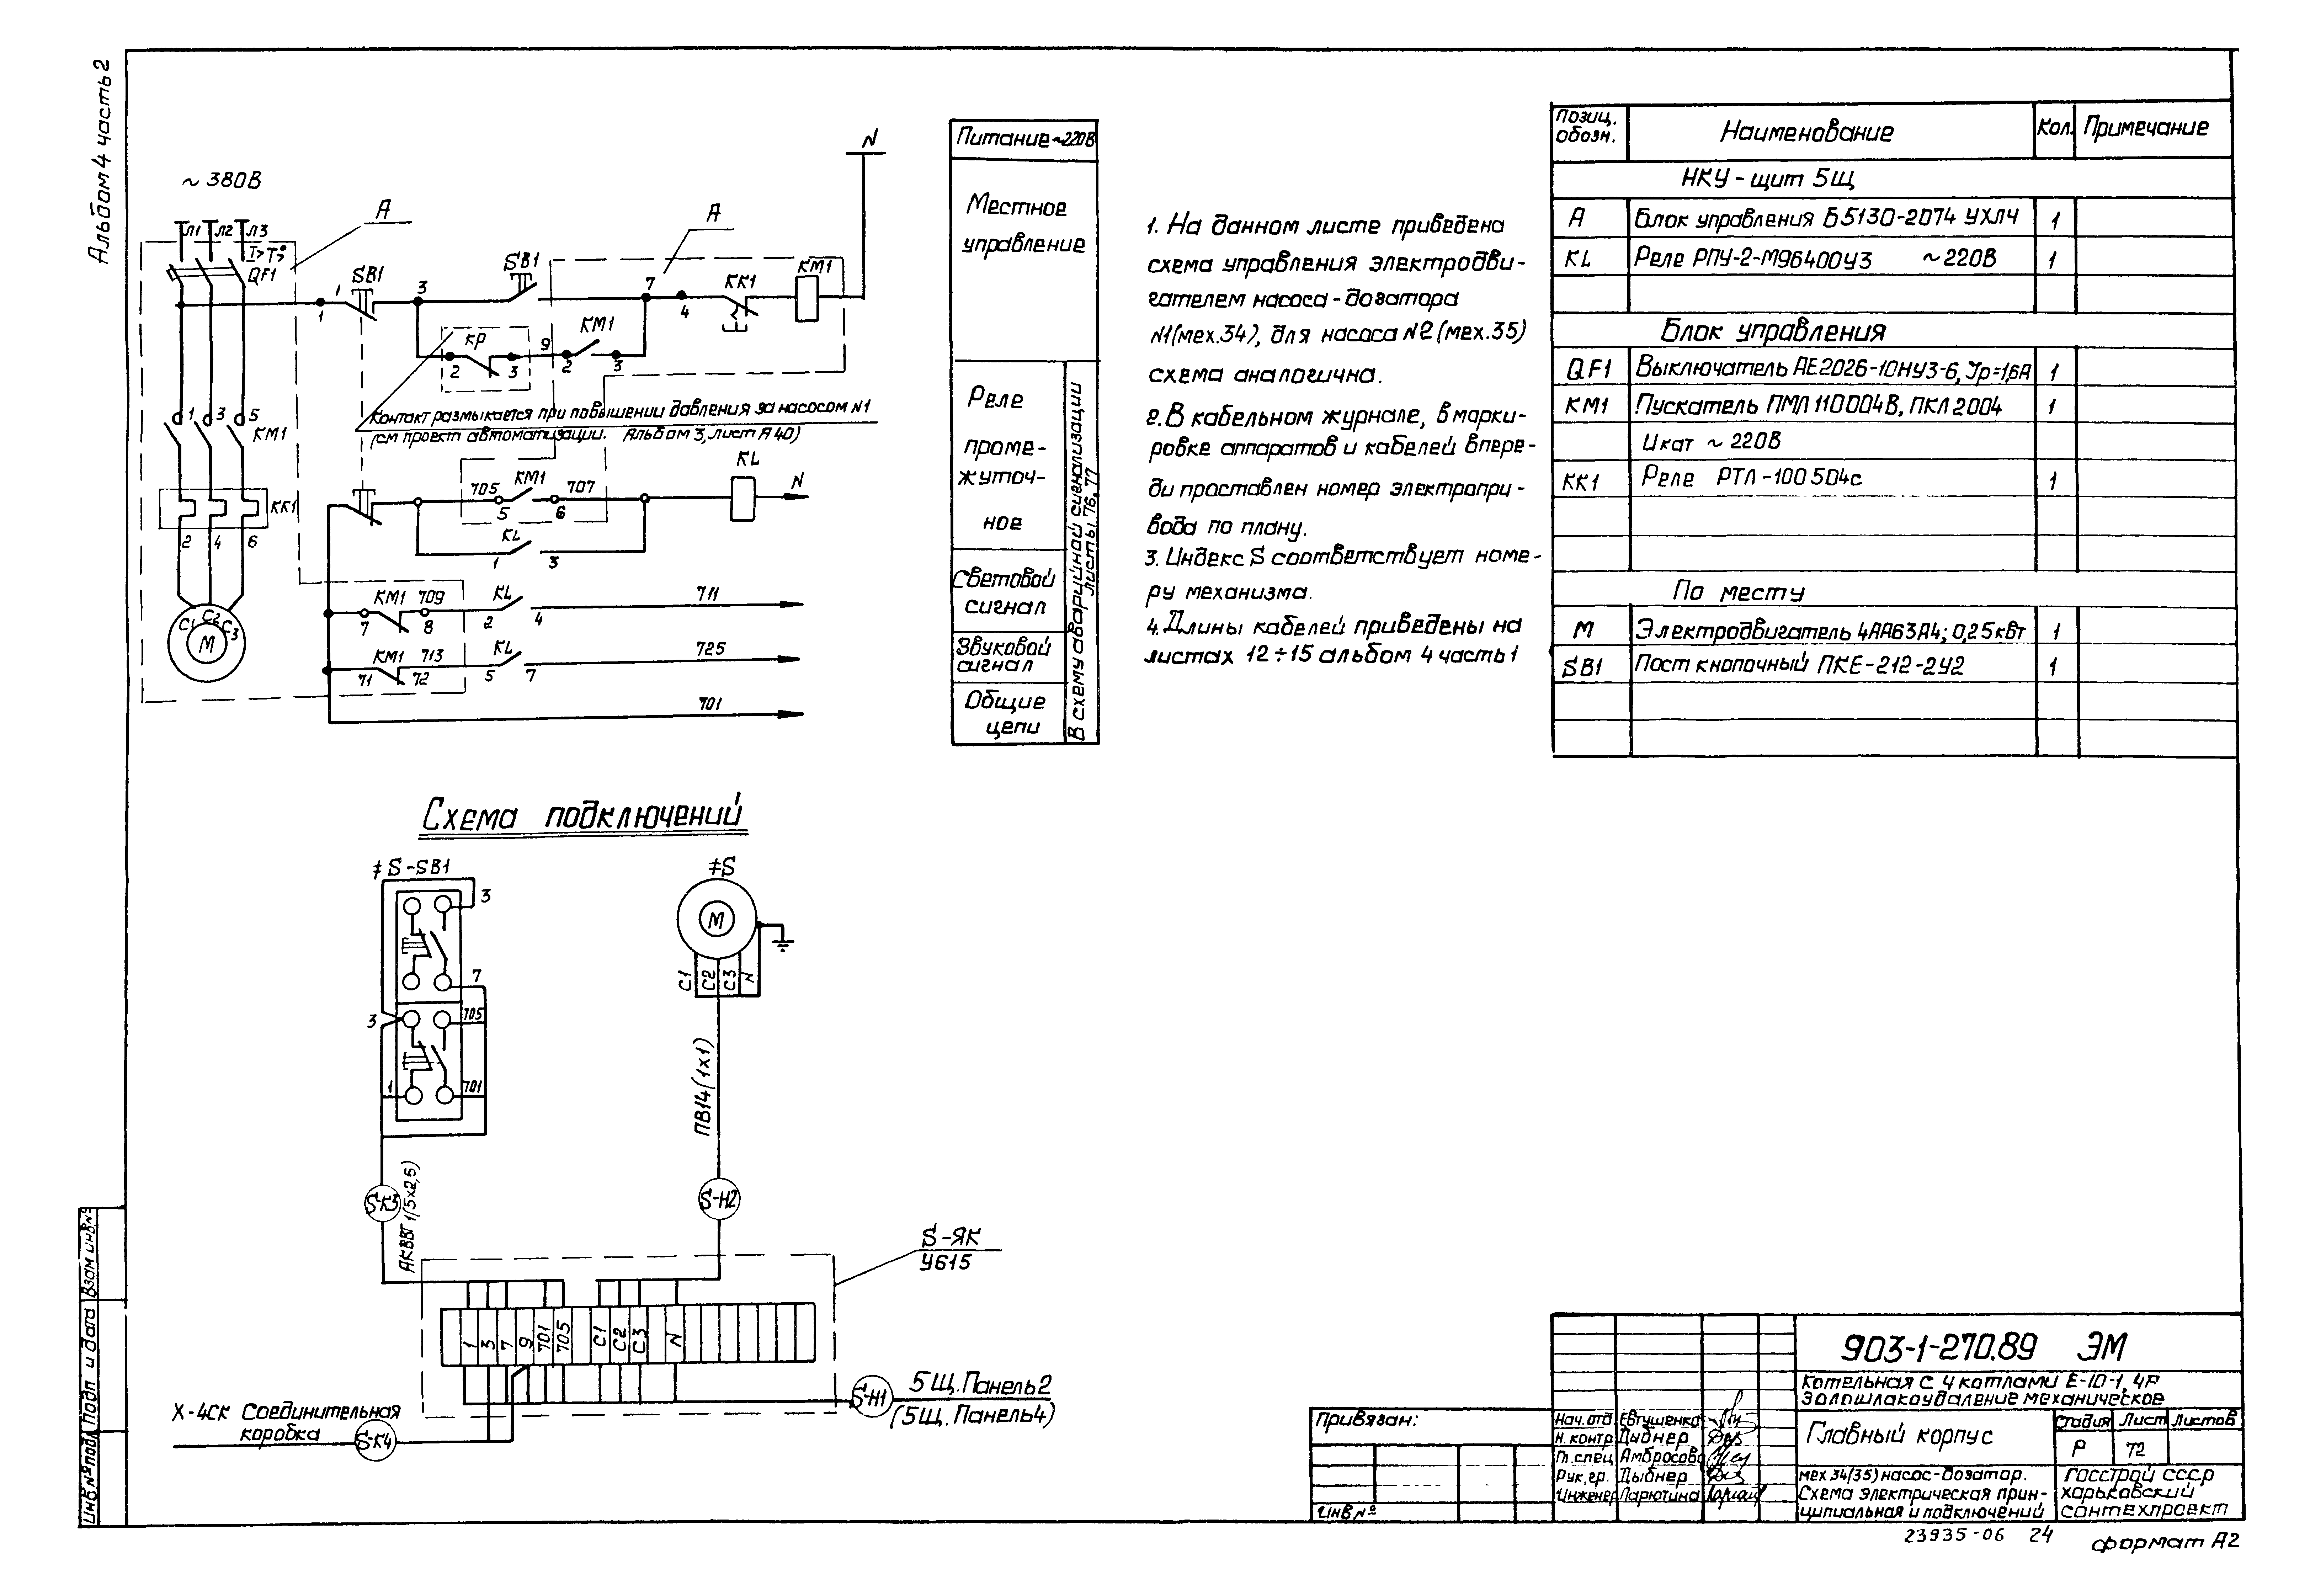 Альбом 4 часть 2
~ 380В
Л1 Л2 Л3
I> T°>
QF1
А
SB1
1
1
3
SB1
А
7
4
КК1
КМ1
N
КР
2 3
9
КМ1
2 3
Контакт размыкается при повышении давления за насосом N1
(см проект автоматизации. Альбом 3, лист А40)
1 3 5
КМ1
КК1
2 4 6
С1 С2 С3
М
705 КМ1 707
5 6
KL
N
KL
1 3
КМ1 709
7 8
KL
2 4
711
КМ1 713
71 72
KL
5 7
725
701
Питание ~220В
Местное
управление
Реле
проме-
жуточ-
ное
Световой
сигнал
Звуковой
сигнал
Общие
цепи
В схему аварийной сигнализации
листы 76, 77
1. На данном листе приведена
схема управления электродви-
гателем насоса-дозатора
N1(мех.34), для насоса N2(мех.35)
схема аналогична.
2. В кабельном журнале, в марки-
ровке аппаратов и кабелей впере-
ди проставлен номер электропри-
вода по плану.
3. Индекс S соответствует номе-
ру механизма.
4. Длины кабелей приведены на
листах 12÷15 альбом 4 часть 1
Позиц. обозн. Наименование Кол. Примечание
НКУ - щит 5Щ
А Блок управления Б5130-2074 УХЛ4 1
KL Реле РПУ-2-М96400У3 ~220В 1
Блок управления
QF1 Выключатель АЕ2026-10НУ3-Б, Jр=1,6А 1
КМ1 Пускатель ПМЛ 110004В, ПКЛ 2004 1
Uкат ~ 220В
КК1 Реле РТЛ-100504с 1
По месту
М Электродвигатель 4АА63А4; 0,25кВт 1
SB1 Пост кнопочный ПКЕ-212-2У2 1
Схема подключений
≠S-SB1
3
7
3
705
1
701
≠S
М
С1 С2 С3 N
ПВ14(1х1)
S-К3
АКВВГ 1(5х2,5)
S-Н2
S-ЯК
У615
1 3 7 9 701 705 С1 С2 С3 N
Х-4СК Соединительная
коробка
S-К4
S-Н1
5Щ. Панель 2
(5Щ. Панель 4)
Взам инв.№
Подп и дата
Инв.№ подл
Привязан:
Инв №
Нач. отд Евтушенко
Н. контр Дыбнер
Гл. спец Амбросова
Рук. гр. Дыбнер
Инженер Ларютина
903-1-270.89 ЭМ
Котельная с 4 котлами Е-10-1,4Р
Золошлакоудаление механическое
Главный корпус
Стадия Лист Листов
Р 72
мех.34(35) насос-дозатор.
Схема электрическая прин-
ципиальная и подключений
Госстрой СССР
Харьковский
Сантехпроект
23935-06 24
формат А2